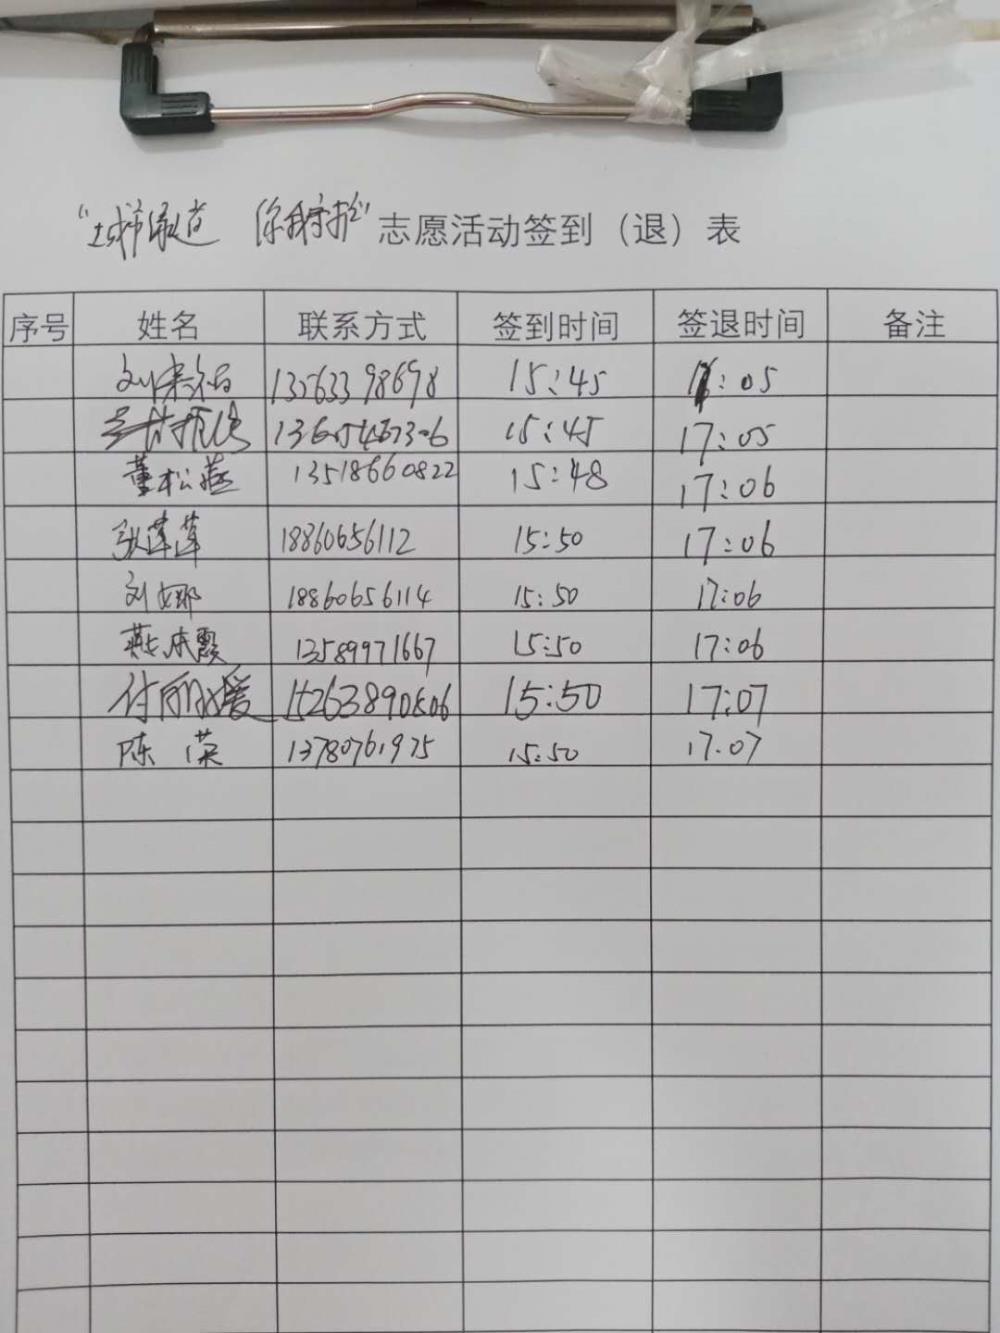 "城市绿道 你我守护"志愿活动签到（退）表
序号 姓名 联系方式 签到时间 签退时间 备注
13563398698 15:45 :05
15:45 17:05
董松燕 13518660822 15:48 17:06
张萍萍 18860656112 15:50 17:06
刘娜 18860656114 15:50 17:06
燕成霞 13589971667 15:50 17:06
付丽媛 15:50 17:07
陈英 13780761975 15:50 17.07